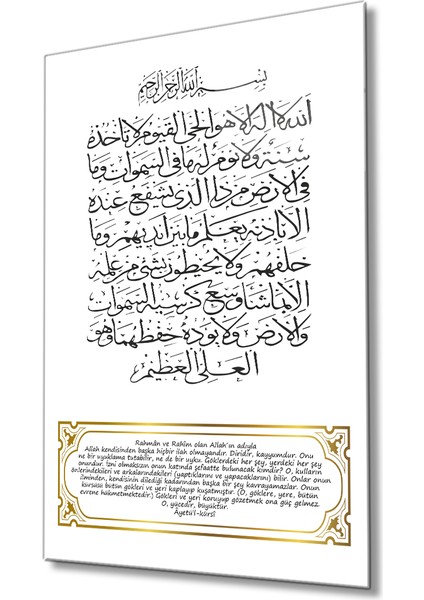 بسم الله الرحمن الرحيم
الله لا اله الا هو الحي القيوم لا تأخذه
سنة ولا نوم له ما في السموات وما
في الارض من ذا الذي يشفع عنده
الا باذنه يعلم ما بين ايديهم وما
خلفهم ولا يحيطون بشئ من علمه
الا بما شاء وسع كرسيه السموات
والارض ولا يؤده حفظهما وهو
العلي العظيم
Rahmân ve Rahîm olan Allah'ın adıyla
Allah kendisinden başka hiçbir ilah olmayandır. Diridir, kayyumdur. Onu
ne bir uyuklama tutabilir, ne de bir uyku. Göklerdeki her şey, yerdeki her şey
onundur. İzni olmaksızın onun katında şefaatte bulunacak kimdir? O, kulların
önlerindekileri ve arkalarındakileri (yaptıklarını ve yapacaklarını) bilir. Onlar onun
ilminden, kendisinin dilediği kadarından başka bir şey kavrayamazlar. Onun
kürsüsü bütün gökleri ve yeri kaplayıp kuşatmıştır. (O, göklere, yere, bütün
evrene hükmetmektedir.) Gökleri ve yeri koruyup gözetmek ona güç gelmez.
O, yücedir, büyüktür.
Âyetü'l-kürsî